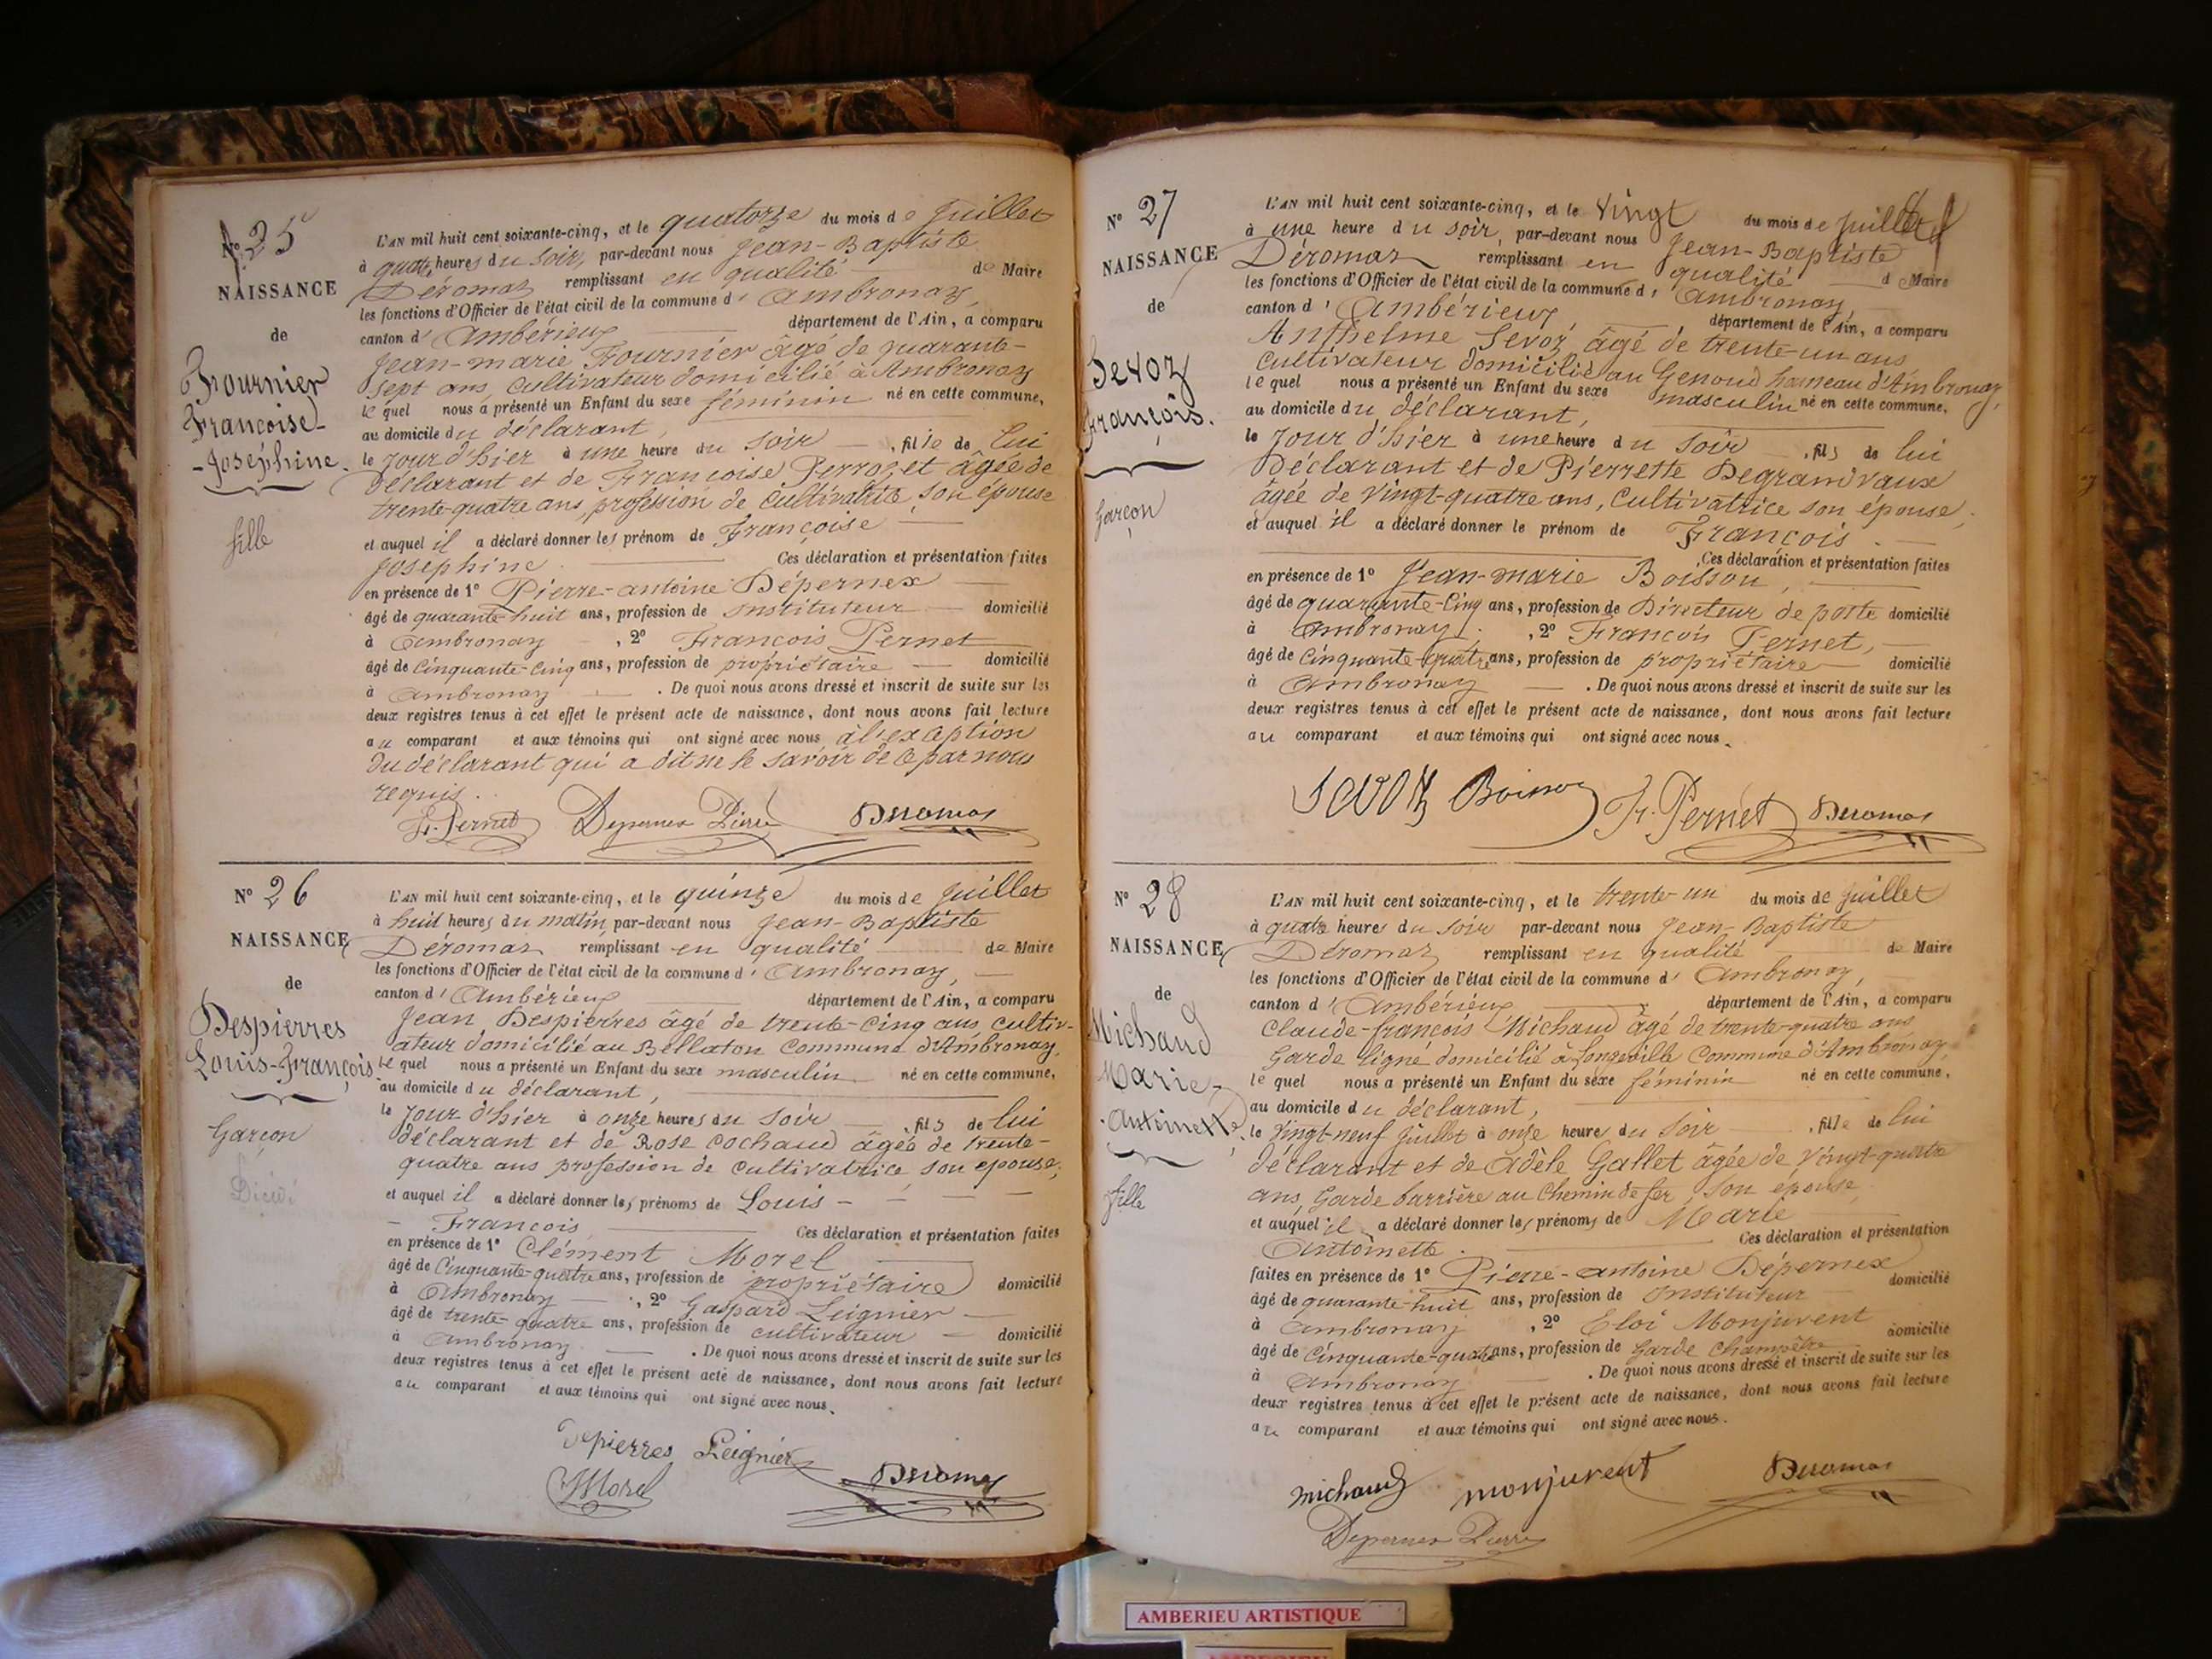 N° 25
NAISSANCE
de
Fournier
Françoise-
-Joséphine.
fille
L'AN mil huit cent soixante-cinq, et le quatorze du mois de Juillet
à quatre heures du soir, par-devant nous Jean-Baptiste
Déromas remplissant en qualité de Maire
les fonctions d'Officier de l'état civil de la commune d'Ambronay,
canton d'Ambérieux département de l'Ain, a comparu
Jean-marie Fournier âgé de quarante-
sept ans, Cultivateur domicilié à Ambronay
lequel nous a présenté un Enfant du sexe féminin né en cette commune,
au domicile du déclarant,
le jour d'hier à une heure du soir, fille de lui
déclarant et de Françoise Perrozet âgée de
trente-quatre ans profession de Cultivatrice, son épouse
et auquel il a déclaré donner les prénom de Françoise
Joséphine. Ces déclaration et présentation faites
en présence de 1° Pierre-antoine Dépernex
âgé de quarante-huit ans, profession de Instituteur domicilié
à Ambronay, 2° François Pernet
âgé de Cinquante-Cinq ans, profession de propriétaire domicilié
à Ambronay. De quoi nous avons dressé et inscrit de suite sur les
deux registres tenus à cet effet le présent acte de naissance, dont nous avons fait lecture
au comparant et aux témoins qui ont signé avec nous à l'exception
du déclarant qui a dit ne le savoir de ce par nous
requis.
Fr. Pernet Depernex Pierre Deromas
N° 26
NAISSANCE
de
Despierres
Louis-François
Garçon
L'AN mil huit cent soixante-cinq, et le quinze du mois de Juillet
à huit heures du matin, par-devant nous Jean-Baptiste
Déromas remplissant en qualité de Maire
les fonctions d'Officier de l'état civil de la commune d'Ambronay,
canton d'Ambérieux département de l'Ain, a comparu
Jean Despierres âgé de trente-Cinq ans, cultiv-
ateur domicilié au Bellaton Commune d'Ambronay,
lequel nous a présenté un Enfant du sexe masculin né en cette commune,
au domicile du déclarant,
le jour d'hier à onze heures du soir, fils de lui
déclarant et de Rose Cochaud âgée de trente-
quatre ans profession de Cultivatrice, son épouse;
et auquel il a déclaré donner les prénoms de Louis-
- François Ces déclaration et présentation faites
en présence de 1° Clément Morel
âgé de Cinquante-quatre ans, profession de propriétaire domicilié
à Ambronay, 2° Gaspard Leignier
âgé de trente-quatre ans, profession de cultivateur domicilié
à Ambronay. De quoi nous avons dressé et inscrit de suite sur les
deux registres tenus à cet effet le présent acte de naissance, dont nous avons fait lecture
au comparant et aux témoins qui ont signé avec nous.
Depierres Leignier
CMorel Deromas
N° 27
NAISSANCE
de
Sevoz
François.
Garçon
L'AN mil huit cent soixante-cinq, et le Vingt du mois de Juillet
à une heure du soir, par-devant nous Jean-Baptiste
Déromas remplissant en qualité d Maire
les fonctions d'Officier de l'état civil de la commune d'Ambronay,
canton d'Ambérieux département de l'Ain, a comparu
Anthelme Sevoz âgé de trente-un ans
Cultivateur domicilié au Genoud hameau d'Ambronay,
lequel nous a présenté un Enfant du sexe masculin né en cette commune,
au domicile du déclarant,
le jour d'hier à une heure du soir, fils de lui
Déclarant et de Pierrette Degrandvaux
âgée de Vingt-quatre ans, Cultivatrice son épouse,
et auquel il a déclaré donner le prénom de François.
Ces déclaration et présentation faites
en présence de 1° Jean-marie Boisson,
âgé de quarante-Cinq ans, profession de Directeur de poste domicilié
à Ambronay, 2° François Pernet,
âgé de Cinquante-quatre ans, profession de propriétaire domicilié
à Ambronay. De quoi nous avons dressé et inscrit de suite sur les
deux registres tenus à cet effet le présent acte de naissance, dont nous avons fait lecture
au comparant et aux témoins qui ont signé avec nous.
Sevoz Boisson Fr. Pernet Deromas
N° 28
NAISSANCE
de
Michaud
Marie-
-Antoinette.
fille
L'AN mil huit cent soixante-cinq, et le trente-un du mois de Juillet
à quatre heures du soir par-devant nous Jean-Baptiste
Déromas remplissant en qualité de Maire
les fonctions d'Officier de l'état civil de la commune d'Ambronay,
canton d'Ambérieux département de l'Ain, a comparu
Claude-françois Michaud âgé de trente-quatre ans
Garde ligne domicilié à Longeville Commune d'Ambronay
lequel nous a présenté un Enfant du sexe féminin né en cette commune,
au domicile du déclarant,
le Vingt-neuf Juillet à onze heures du soir, fille de lui
déclarant et de Adèle Gallet âgée de Vingt-quatre
ans, Garde barrière au Chemin de fer, son épouse,
et auquel il a déclaré donner les prénoms de Marie
Antoinette. Ces déclaration et présentation
faites en présence de 1° Pierre-antoine Dépernex
âgé de quarante-huit ans, profession de Instituteur domicilié
à Ambronay, 2° Eloi Monjuvent
âgé de Cinquante-quatre ans, profession de Garde Champêtre domicilié
à Ambronay. De quoi nous avons dressé et inscrit de suite sur les
deux registres tenus à cet effet le présent acte de naissance, dont nous avons fait lecture
au comparant et aux témoins qui ont signé avec nous.
michaud monjuvent Deromas
Depernex Pierre
AMBERIEU ARTISTIQUE